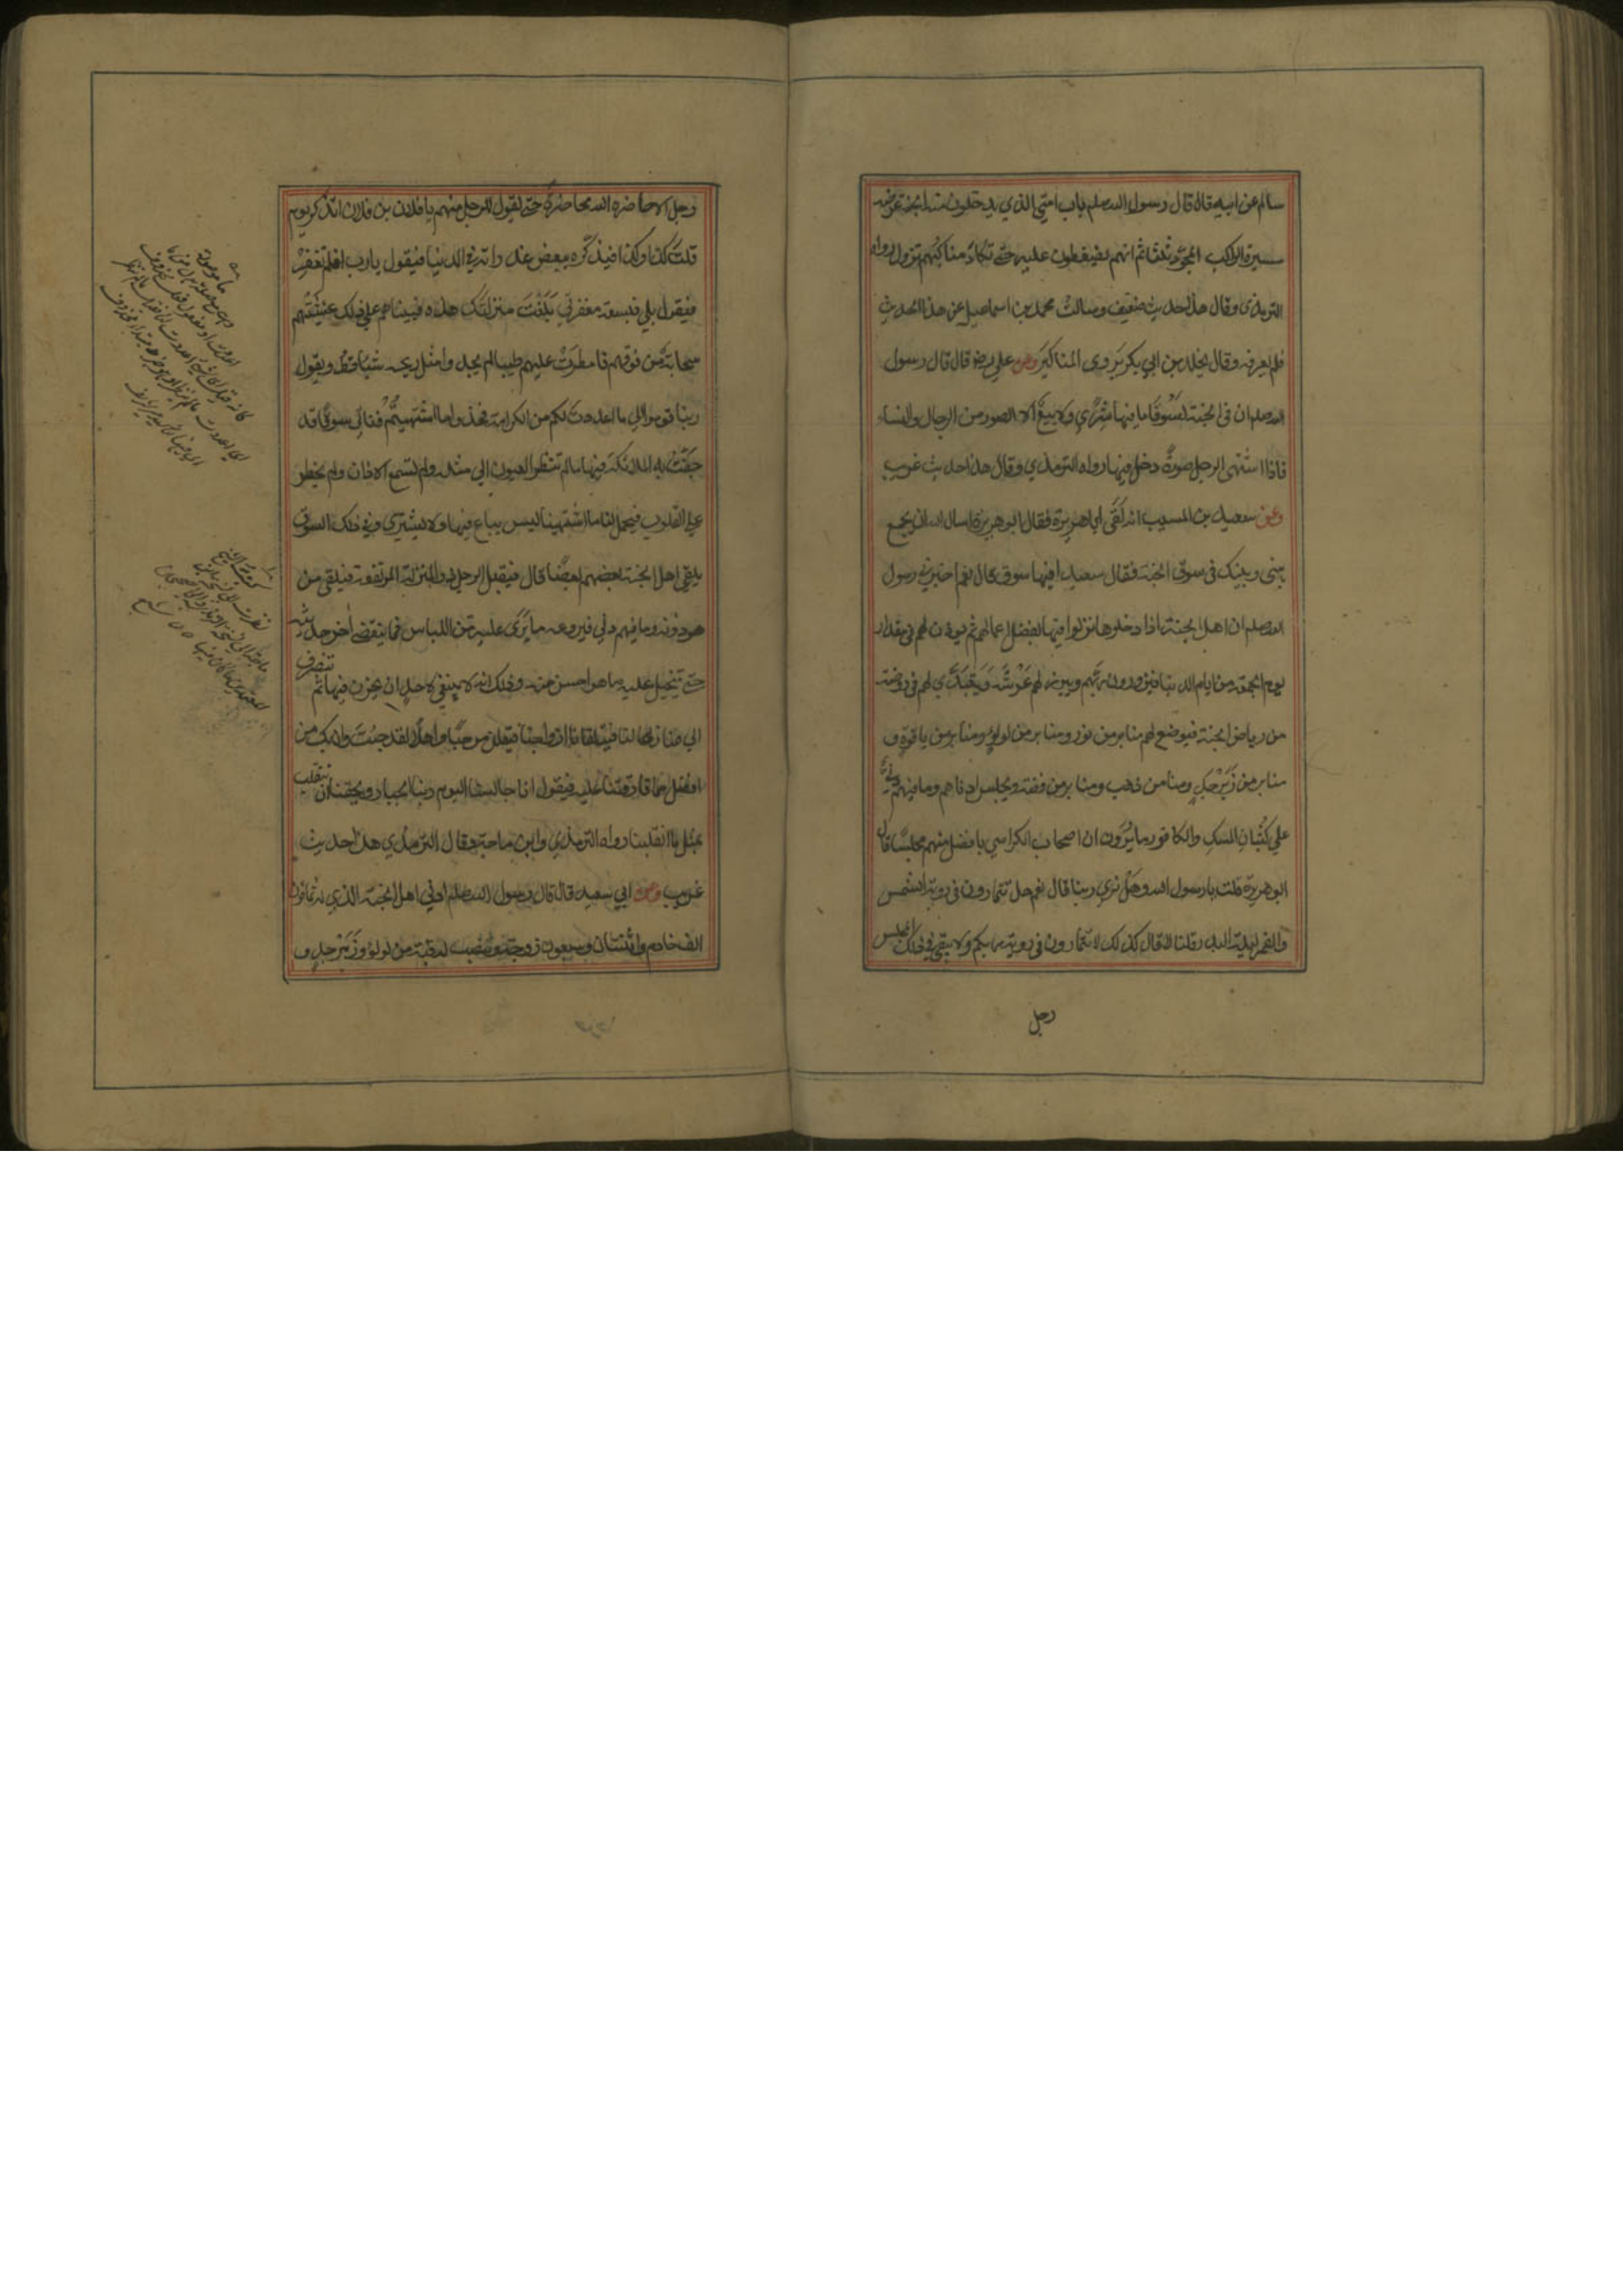 سالم عن ابيه قال قال رسول الله صلعم باب امتي الذي يدخلون منه الجنة عرضه
مسيرة الراكب المجوّد ثلثا ثم انهم ليضغطون عليه حتى تكاد مناكبهم تزول رواه
الترمذي وقال هذا حديث ضعيف وسالت محمد بن اسماعيل عن هذا الحديث
فلم يعرفه وقال يخلد بن ابي بكر يروى المناكير وعن علي رضـ قال قال رسول
الله صلعم ان في الجنة لسُوقًا ما فيها شِرًى ولا بيعٌ الا الصور من الرجال والنساء
فاذا اشتهى الرجل صورةً دخل فيها رواه الترمذي وقال هذا حديث غريب
وعن سعيد بن المسيب انه لَقِيَ ابا هريرة فقال ابو هريرة اسال الله ان يجمع
بيني وبينك في سوق الجنة فقال سعيد افيها سوق قال نعم اخبرني رسول
الله صلعم ان اهل الجنة اذا دخلوها نزلوا فيها بفضل اعمالهم ثم يوذن لهم في مقدار
يوم الجمعة من ايام الدنيا فيزورون ربهم ويبرز لهم عَرْشَه وَيَتَبَدَّى لهم في روضة
من رياض الجنة فيوضع لهم منابر من نور ومنابر من لولؤ ومنابر من ياقوة و
منابر من زَبَرْجَدٍ ومنابر من ذهب ومنابر من فضة ويجلس ادناهم وما فيهم دني
على كُثْبانِ المسكِ والكافور ما يُرَون ان اصحاب الكراسي بافضل منهم مجلسًا قال
ابو هريرة قلت يا رسول الله وهَلْ نرى ربنا قال نعم هل تتمارون في روية الشمس
والقمر ليلة البدر قلنا لا قال كذلك لا تتمارون في روية ربكم ولا يبقى في ذلك المجلس
رجل
رجل الا حاضره الله محاضرة حتى يقول للرجل منهم يا فلان بن فلان اتذكر يوم
قلتَ كذا وكذا فيذكّره ببعض غدراته في الدنيا فيقول يا رب افلم تغفِرْ
فيقول بلى فبسعة مغفرتي بَلَغْتَ منزلتَك هذه فبينا هم على ذلك غشيَتْهم
سحابة مّن فوقهم فامطرَتْ عليهم طيبا لم يجدوا مثل ريحه شيئًا قطُّ ويقول
ربنا قوموا الى ما اعددتُ لكم من الكرامة فخذوا ما اشتهيتُمْ فناتي سوقًا قد
حَفَّتْ به الملائكة فيها ما لم تنظر العيون الى مثله ولم تسمع الاذان ولم يخطر
على القلوب فيحمل لنا ما اشتهينا ليس يباع فيها ولا يشترى وفي ذلك السوق
يلقى اهل الجنة بعضهم بعضًا قال فيقبل الرجل ذو المنزلة المرتفعة فيلقى من
هو دونه وما فيهم دني فيروعه ما يَرَى عليه مّن اللباس فما ينقضي اخر حديثه
حتى يتخيل عليه ما هو احسن منه وذلك انه لا ينبغي لاحدٍ ان يحزن فيها ثم ننصرف
الى منازلنا فيتلقانا ازواجنا فيقلن مرحبًا واهلًا لقد جئتَ وان بك من
افضل مما فارقتنا عليه فيقول انا جالسنا اليوم ربنا الجبار ويحقنا ان ننقلب
بمثل ما انقلبنا رواه الترمذي وابن ماجة وقال الترمذي هذا حديث
غريب وعن ابي سعيد قال قال رسول الله صلعم ادنى اهل الجنة الذي له ثمانون
الف خادم واثنتان وسبعون زوجة وتنصب له قبة من لولؤ وزَبَرْجدٍ و